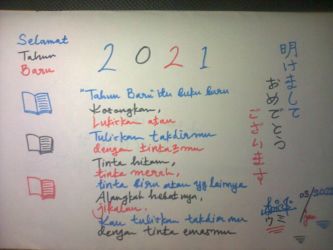 Selamat
Tahun
Baru
2021
"Tahun Baru" itu buku baru
Kosongkan,
Lukiskan atau
Tuliskan takdirmu
dengan tintamu
Tinta hitam,
tinta merah,
tinta biru atau yg lainnya
Alangkah hebatnya,
jikalau
Kau tuliskan takdirmu
dengan tinta emasmu
明けまして
おめでとう
ございます